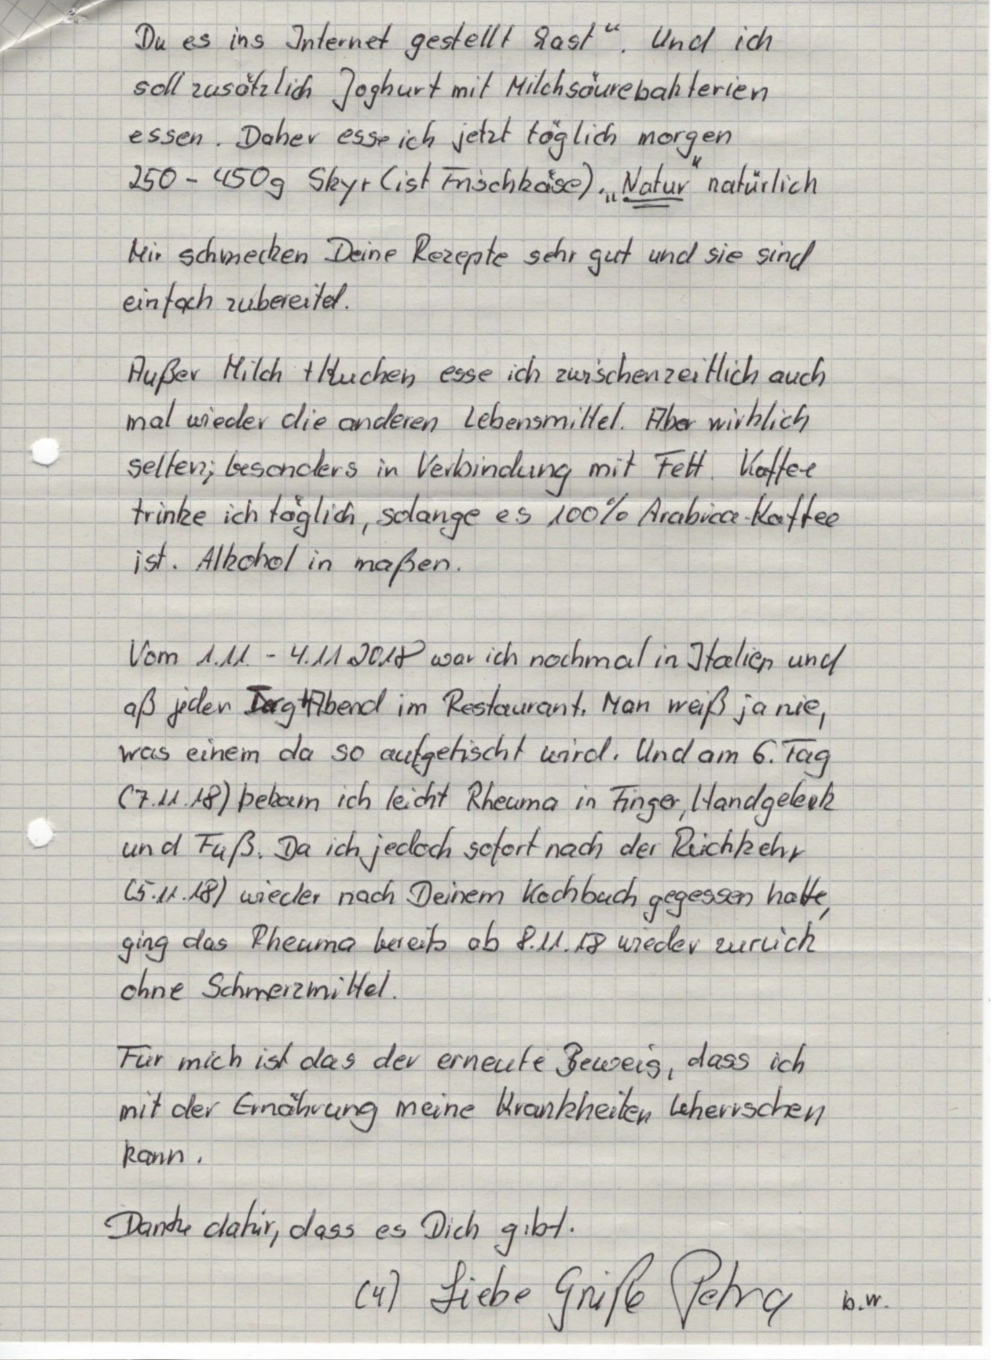 Du es ins Internet gestellt hast“. Und ich
soll zusätzlich Joghurt mit Milchsäurebakterien
essen. Daher esse ich jetzt täglich morgen
250 - 450g Skyr (ist Frischkäse). „Natur“ natürlich
Mir schmecken Deine Rezepte sehr gut und sie sind
einfach zubereitet.
Außer Milch + Kuchen esse ich zwischenzeitlich auch
mal wieder die anderen Lebensmittel. Aber wirklich
selten; besonders in Verbindung mit Fett. Kaffee
trinke ich täglich, solange es 100% Arabica-Kaffee
ist. Alkohol in maßen.
Vom 1.11. - 4.11.2018 war ich nochmal in Italien und
aß jeden Abend im Restaurant. Man weiß ja nie,
was einem da so aufgetischt wird. Und am 6. Tag
(7.11.18) bekam ich leicht Rheuma in Finger, Handgelenk
und Fuß. Da ich jedoch sofort nach der Rückkehr
(5.11.18) wieder nach Deinem Kochbuch gegessen hatte,
ging das Rheuma bereits ab 8.11.18 wieder zurück
ohne Schmerzmittel.
Für mich ist das der erneute Beweis, dass ich
mit der Ernährung meine Krankheiten beherrschen
kann.
Danke dafür, dass es Dich gibt.
(4) Liebe Grüße Petra b.w.